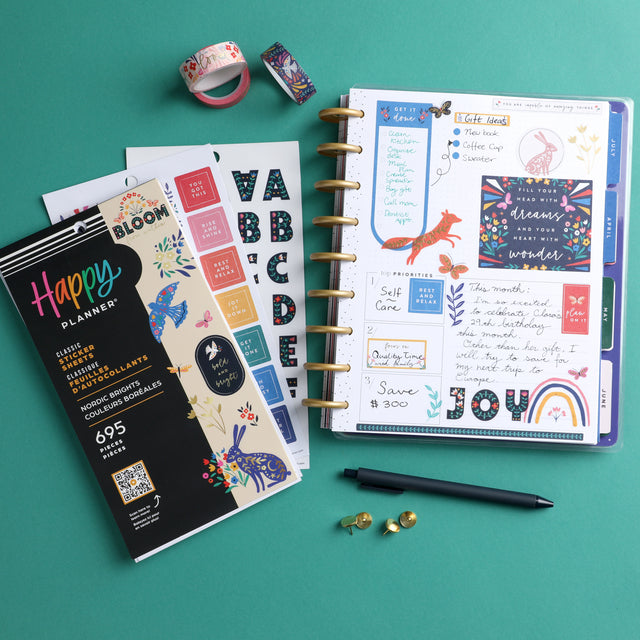 BLOOM
Happy
PLANNER®
CLASSIC
STICKER
SHEETS
CLASSIQUE
FEUILLES
D'AUTOCOLLANTS
NORDIC BRIGHTS
COULEURS BORÉALES
695
PIECES
PIÈCES
bold
and
bright
YOU
GOT
THIS
RISE
AND
SHINE
REST
AND
RELAX
JOT
IT
DOWN
GET IT
DONE
GET IT
done
Clean
Kitchen
Organize
desk
Meal
Plan
Buy gift
Call mom
Dentist
Appt
YOU ARE capable OF amazing THINGS
Gift Ideas
New book
Coffee Cup
Sweater
FILL YOUR
HEAD WITH
dreams
AND YOUR
HEART WITH
wonder
top PRIORITIES
1 Self
~
Care
REST
AND
RELAX
2
focus on
Quality Time
and family
3 Save
$300
This month:
I'm so excited
to celebrate
29th birthday
this month.
Other than her gift, I
will try to save for
my next trip to
Europe.
plan
ON IT
JOY
JULY
APRIL
MAY
JUNE